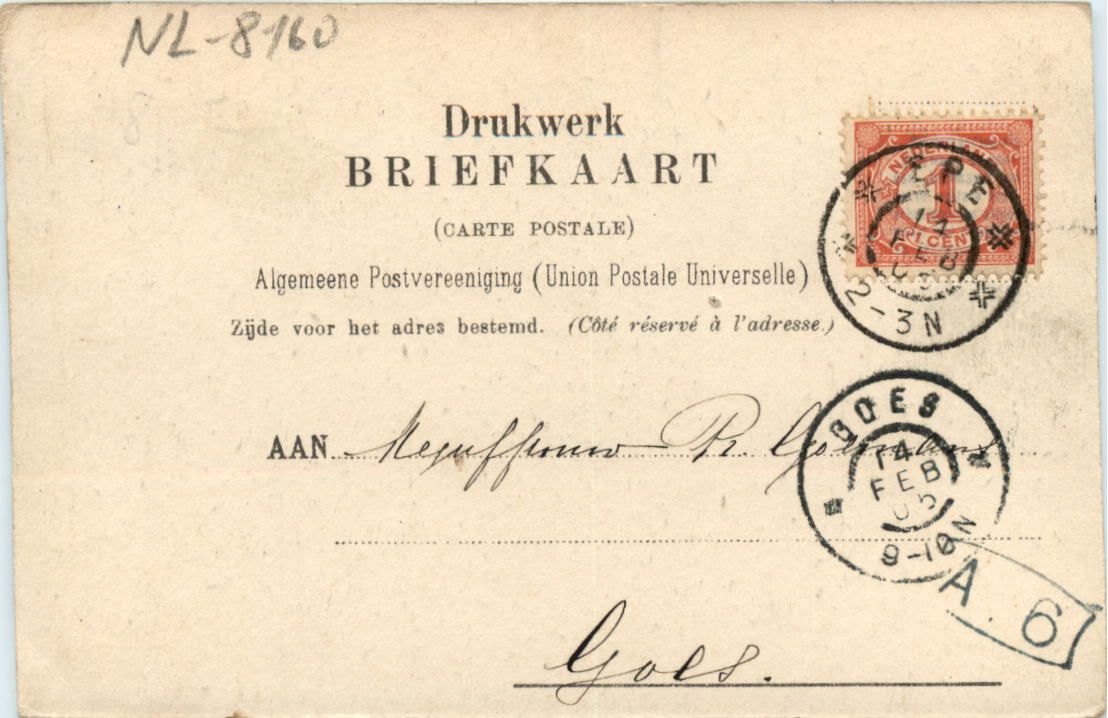 NL-8160
Drukwerk
BRIEFKAART
(CARTE POSTALE)
Algemeene Postvereeniging (Union Postale Universelle)
Zijde voor het adres bestemd. (Côté réservé à l'adresse.)
NEDERLAND
1
1 CENT
EPE
14
FEB
05
2-3N
GOES
14
FEB
05
9-10N
AAN Mejuffrouw R.
Goes.
A. 6